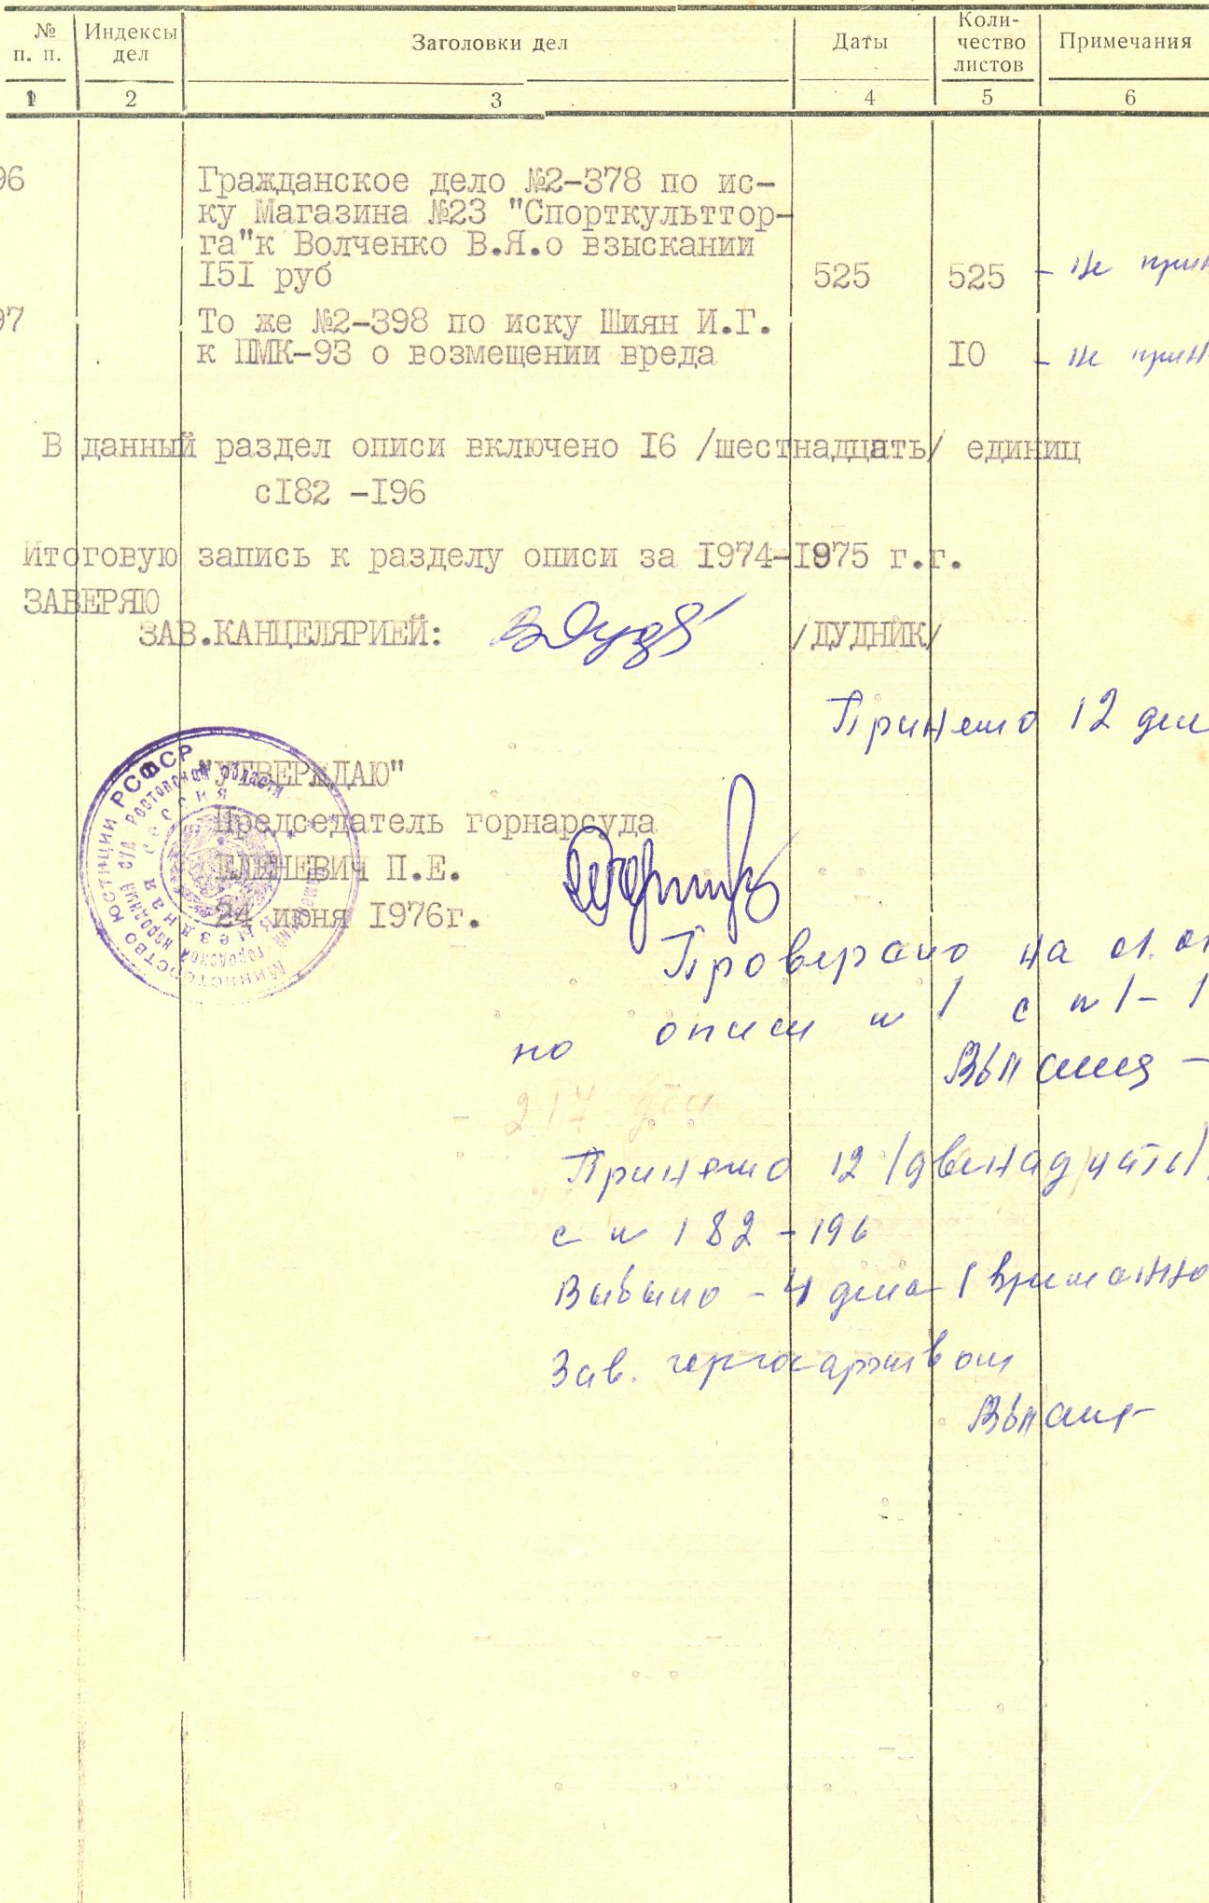 № п. п. Индексы дел Заголовки дел Даты Коли-чество листов Примечания
1 2 3 4 5 6
96 Гражданское дело №2-378 по ис-
ку Магазина №23 "Спорткультор-
га"к Волченко В.Я.о взыскании
I5I руб 525 525 - не прин
97 То же №2-398 по иску Шиян И.Г.
к ПМК-93 о возмещении вреда I0 - не прин
В данный раздел описи включено I6 /шестнадцать/ единиц
сI82 -I96
Итоговую запись к разделу описи за I974-I975 г.г.
ЗАВЕРЯЮ
ЗАВ.КАНЦЕЛЯРИЕЙ: /ДУДНИК/
Принято 12 дел
"УТВЕРЖДАЮ"
Председатель горнарсуда
ЕЛЕНЕВИЧ П.Е.
24 июня I976г.
Министерство юстиции РСФСР
Ростовской области
Проверено на
по описи № 1 с № 1-1
- 217 дел
Принято 12 (двенадцать)
с № 182-196
Выбыло - 4 дела (временно
Зав. горгосархивом